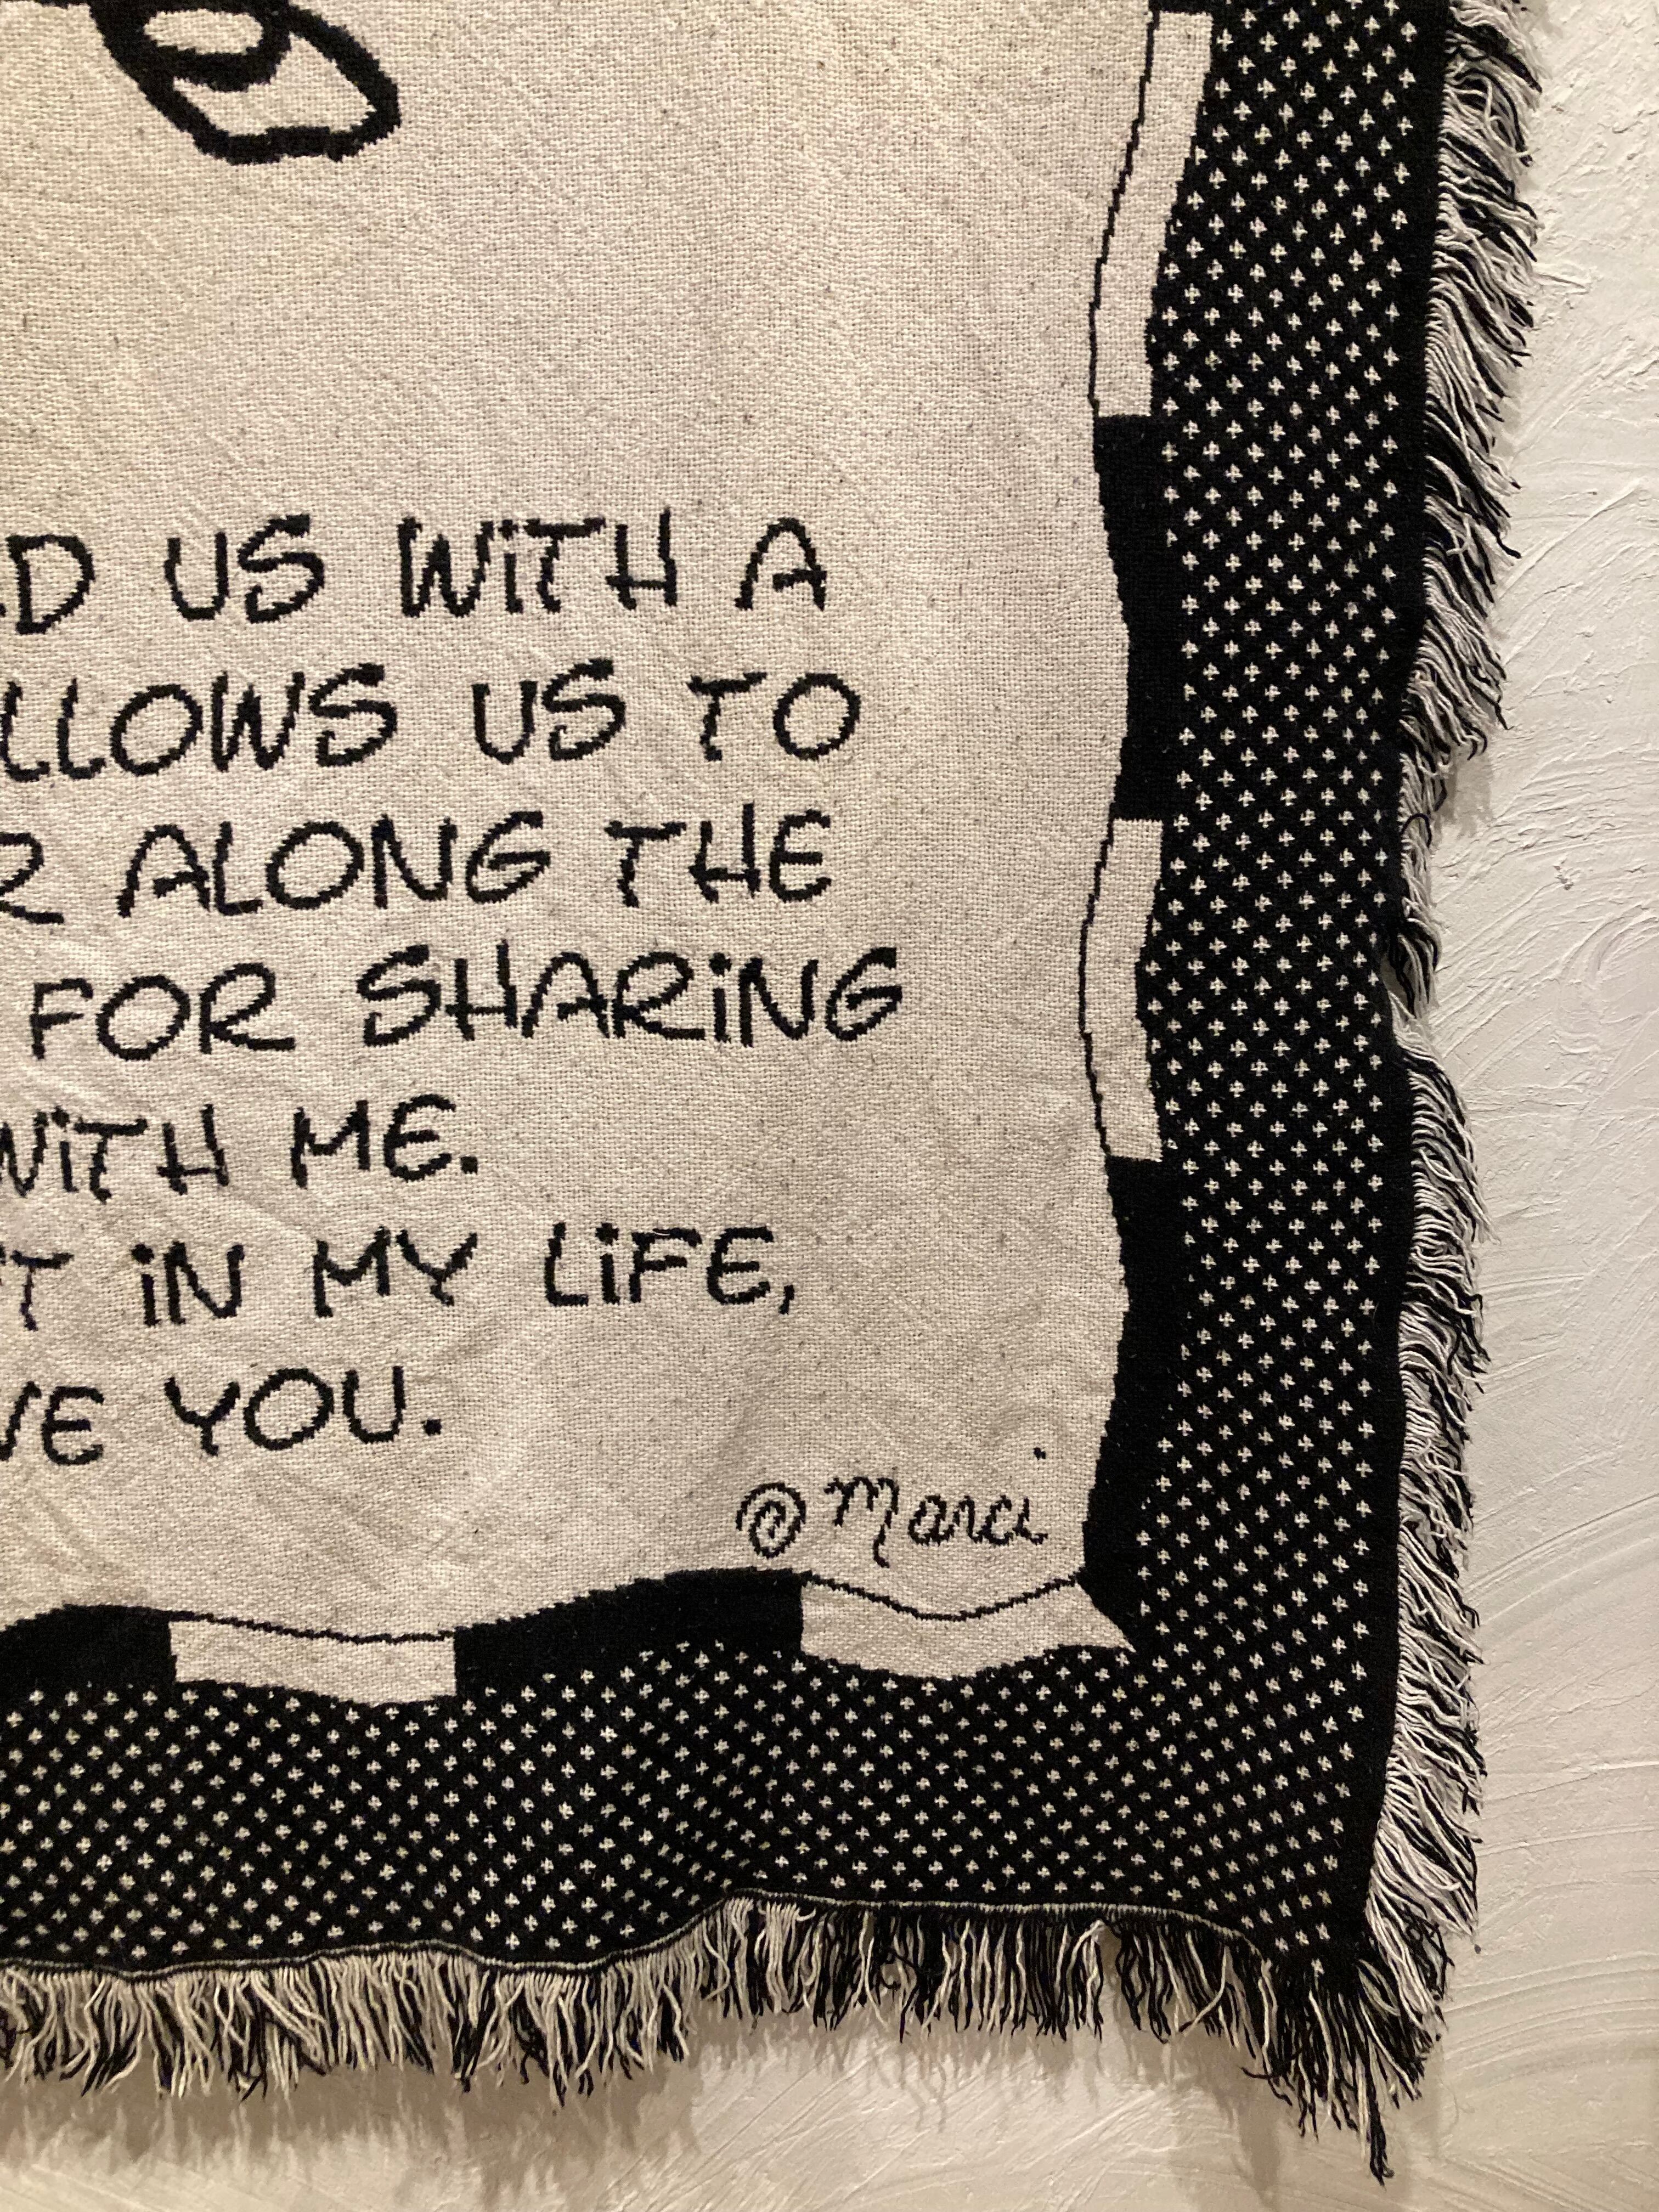 US WiTH A
US TO
ALONG THE
FOR SHARiNG
WiTH ME.
iN MY LiFE,
YOU.
© Marci